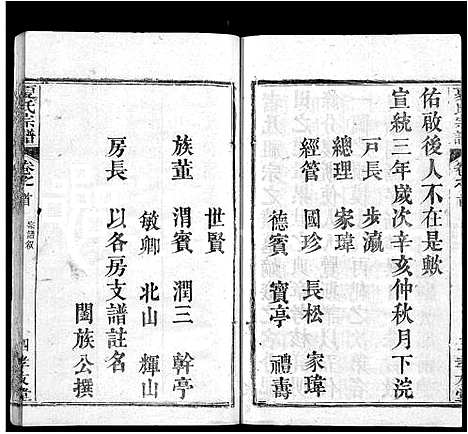 佑啟後人不在是歟
宣統三年歲次辛亥仲秋月下浣
戸長 步瀛
總理 家瑋
經管 國珍 長松 家瑋
德賓 寶亭 禮壽
世賢
族董 渭賓 潤三 幹亭
敏卿 北山 輝山
房長 以各房支譜註名
闔族公撰
夏氏宗譜
卷之首